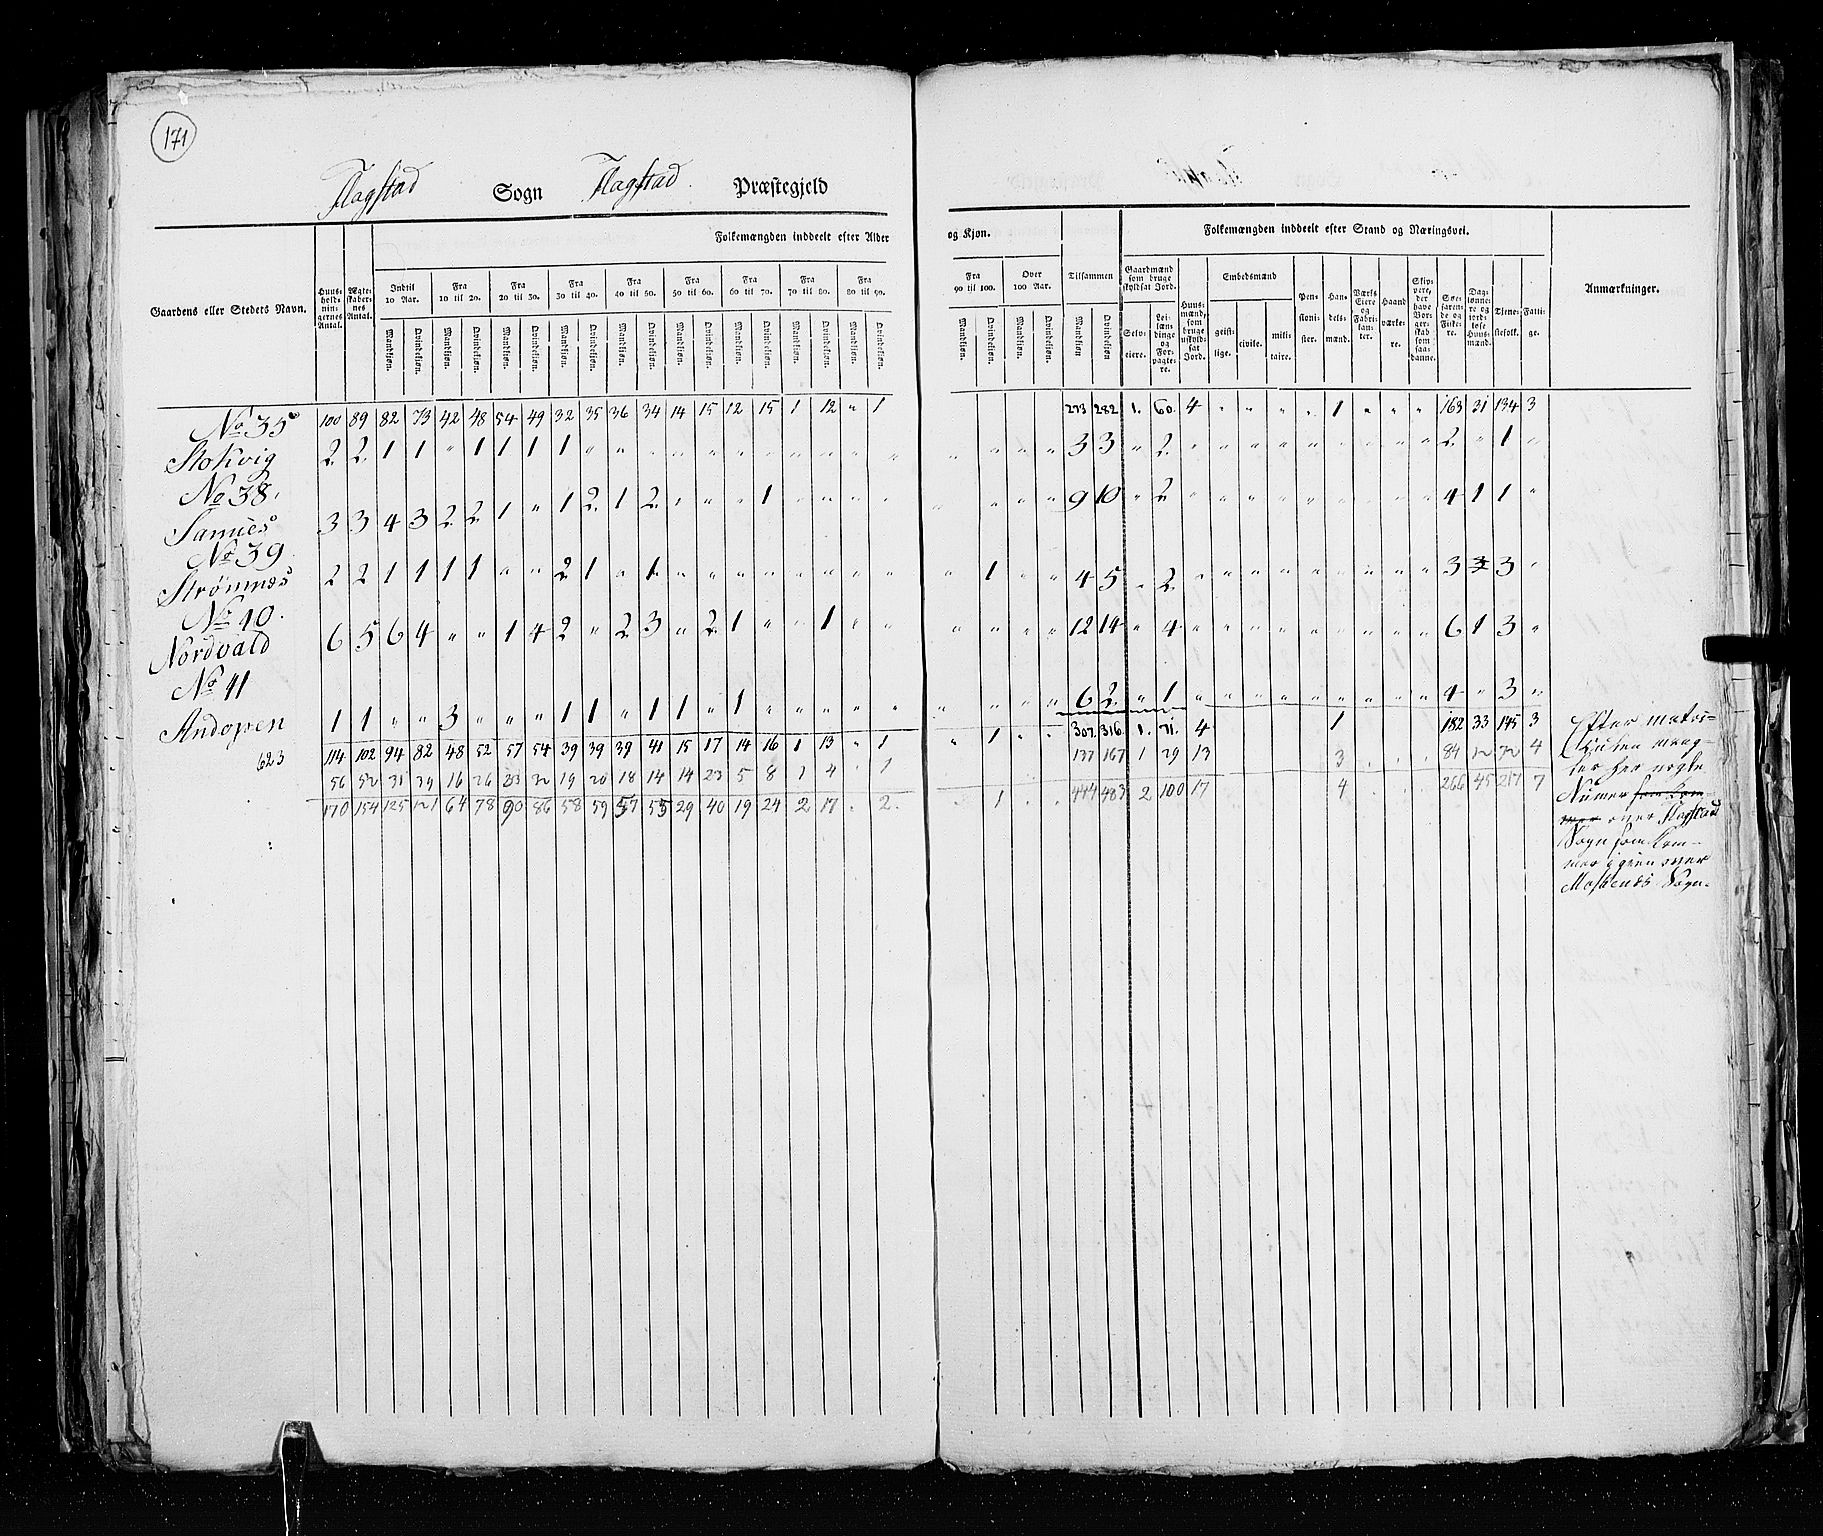 171
Flagstad Sogn Flagstad Præstegjeld
Folkemængden inddeelt efter Alder og Kjøn.
Folkemængden inddeelt efter Stand og Næringsvei.
Gaardens eller Stedets Navn.
Huusholdningernes Antal.
Ægteskabernes Antal.
Indtil 10 Aar.
Fra 10 til 20.
Fra 20 til 30.
Fra 30 til 40.
Fra 40 til 50.
Fra 50 til 60.
Fra 60 til 70.
Fra 70 til 80.
Fra 80 til 90.
Fra 90 til 100.
Over 100 Aar.
Tilsammen
Gaardmænd som bruge skyldsat Jord.
Selveiere.
Leilændinge og Forpagtere.
Huusmænd, som bruge uskyldsat Jord.
Embedsmænd
geistlige.
civile.
militaire.
Pensionister.
Handelsmænd.
Værks Eiere og Fabrikanter.
Haandværkere.
Skippere, der have Borgerskab som saadanne.
Søefarende og Fiskere.
Daglønnere og jordløse Huusmænd.
Tjenestefolk.
Fattige.
Anmærkninger.
Mandkjøn. Qvindekjøn. Mandkjøn. Qvindekjøn. Mandkjøn. Qvindekjøn. Mandkjøn. Qvindekjøn. Mandkjøn. Qvindekjøn. Mandkjøn. Qvindekjøn. Mandkjøn. Qvindekjøn. Mandkjøn. Qvindekjøn. Mandkjøn. Qvindekjøn. Mandkjøn. Qvindekjøn. Mandkjøn. Qvindekjøn. Mandkjøn Qvindekjøn
No 35 100 89 82 73 42 48 54 49 32 35 36 34 14 15 12 15 1 12 " 1 273 282 1. 60. 4 " " " " 1 " " " 163 31 134 3
Stokvig 2 2 1 1 " 1 1 1 1 " " " " " " " " " " " " " " " 3 3 " 2 " " " " " " " " " 2 " 1 "
No 38.
Sannes 3 3 4 3 2 2 1 " 1 2 1 2 " " " 1 " " " " " " " " 9 10 " 2 " " " " " " " " " 4 1 1 "
No 39
Strömnæs 2 2 1 1 1 1 " " 2 1 " 1 " " " " " " " " " 1 " " 4 5 " 2 " " " " " " " " " 3 3 "
No 40.
Nordvald 6 5 6 4 " " 1 4 2 " 2 3 " 2 1 " " 1 " " " " " " 12 14 " 4 " " " " " " " " " 6 1 3 "
No 41
Andopen 1 1 " " 3 " " " 1 1 " 1 1 " 1 " " " " " " " " " 6 2 " 1 " " " " " " " " " 4 " 3 "
623 114 102 94 82 48 52 57 54 39 39 39 41 15 17 14 16 1 13 " 1 " 1 " " 307. 316. 1. 71. 4 1 182 33 145 3
56 52 31 39 16 26 33 32 19 20 18 14 14 23 5 8 1 4 " 1 137 167 1 29 13 3 84 12 72 4
170 154 125 121 64 78 90 86 58 59 57 55 29 40 19 24 2 17 . 2. 1 444 483 2 100 17 4 266 45 217 7
Efter matri-
kulen mang-
ler her nogle
Numer som kom-
mer over Flagstad
Sogn som kom-
mer igien over
Moskenæs Sogn.